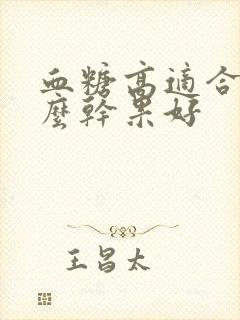 血糖高適合
麼幹果好
王昌太